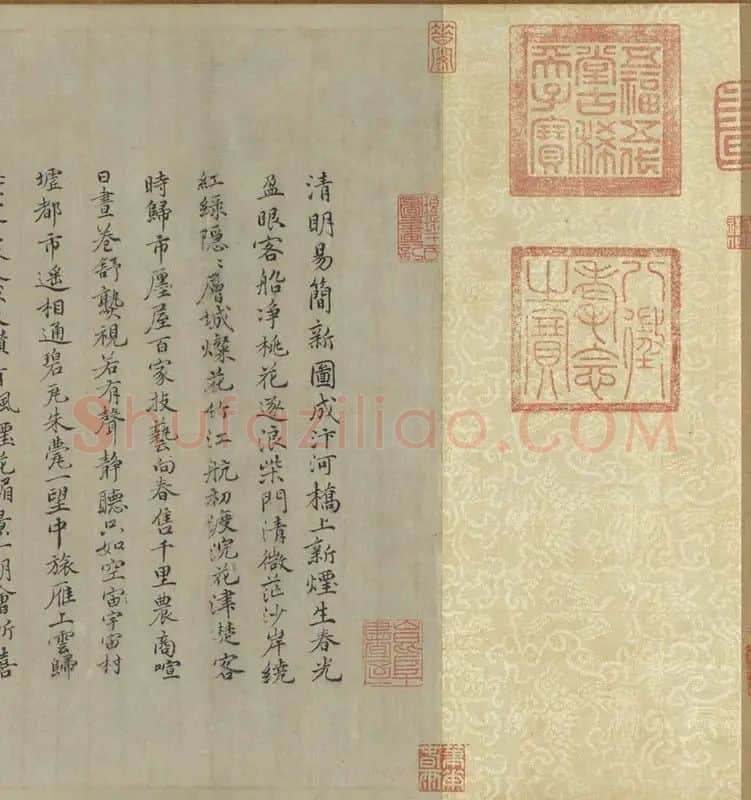 五福五代
堂古稀
天子寶
八徵
耄念
之寶
清明易簡新圖成汴河橋上新煙生春光
盈眼客船净桃花逐浪柴門清微茫沙岸繞
紅綠隱〻層城燦花竹江航初渡浣花津楚客
時歸市廛屋百家技藝向春售千里農商喧
日晝卷舒熟視若有聲靜聽只如空宙宇宙村
墟都市遥相通碧瓦朱甍一望中旅雁上雲歸
Shufaziliao.COM